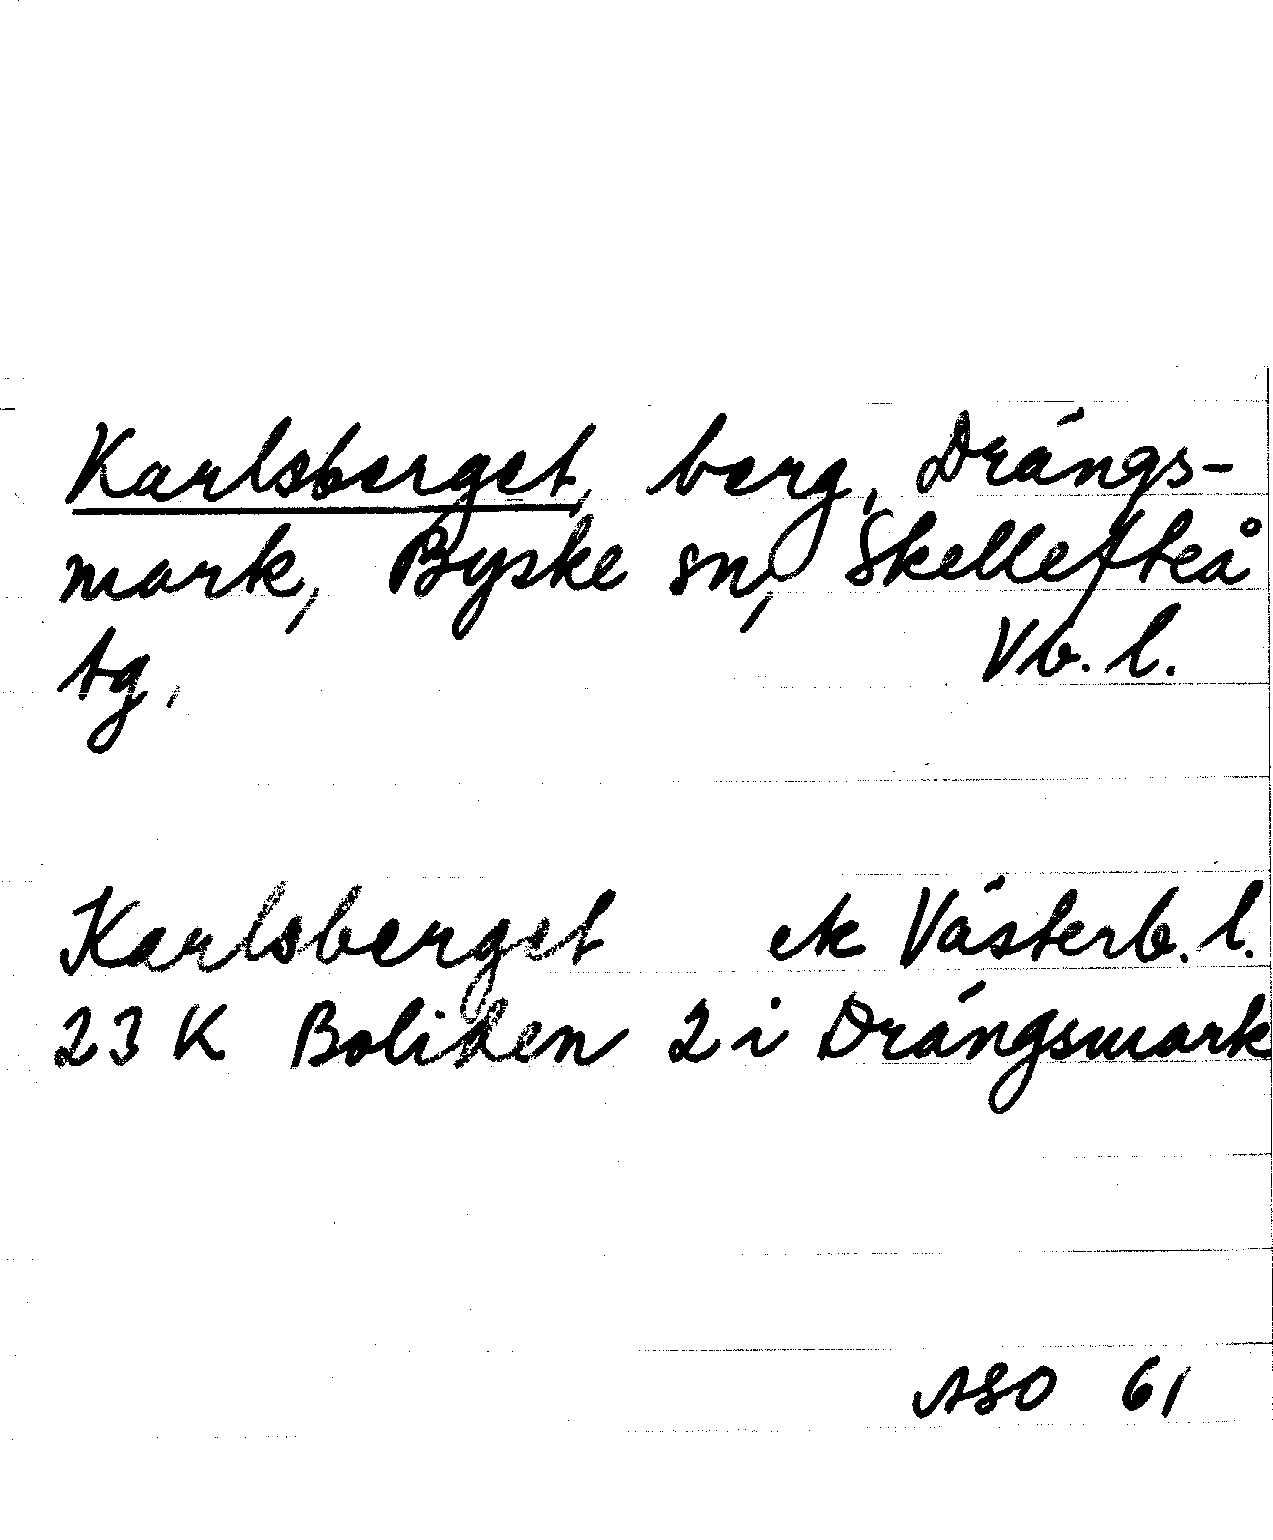 Karlsberget, berg, Drängs-
mark, Byske sn, Skellefteå
tg,                Vb. l.
Karlsberget   ek Västerb. l.
23 K Boliden 2 i Drängsmark
ASO 61